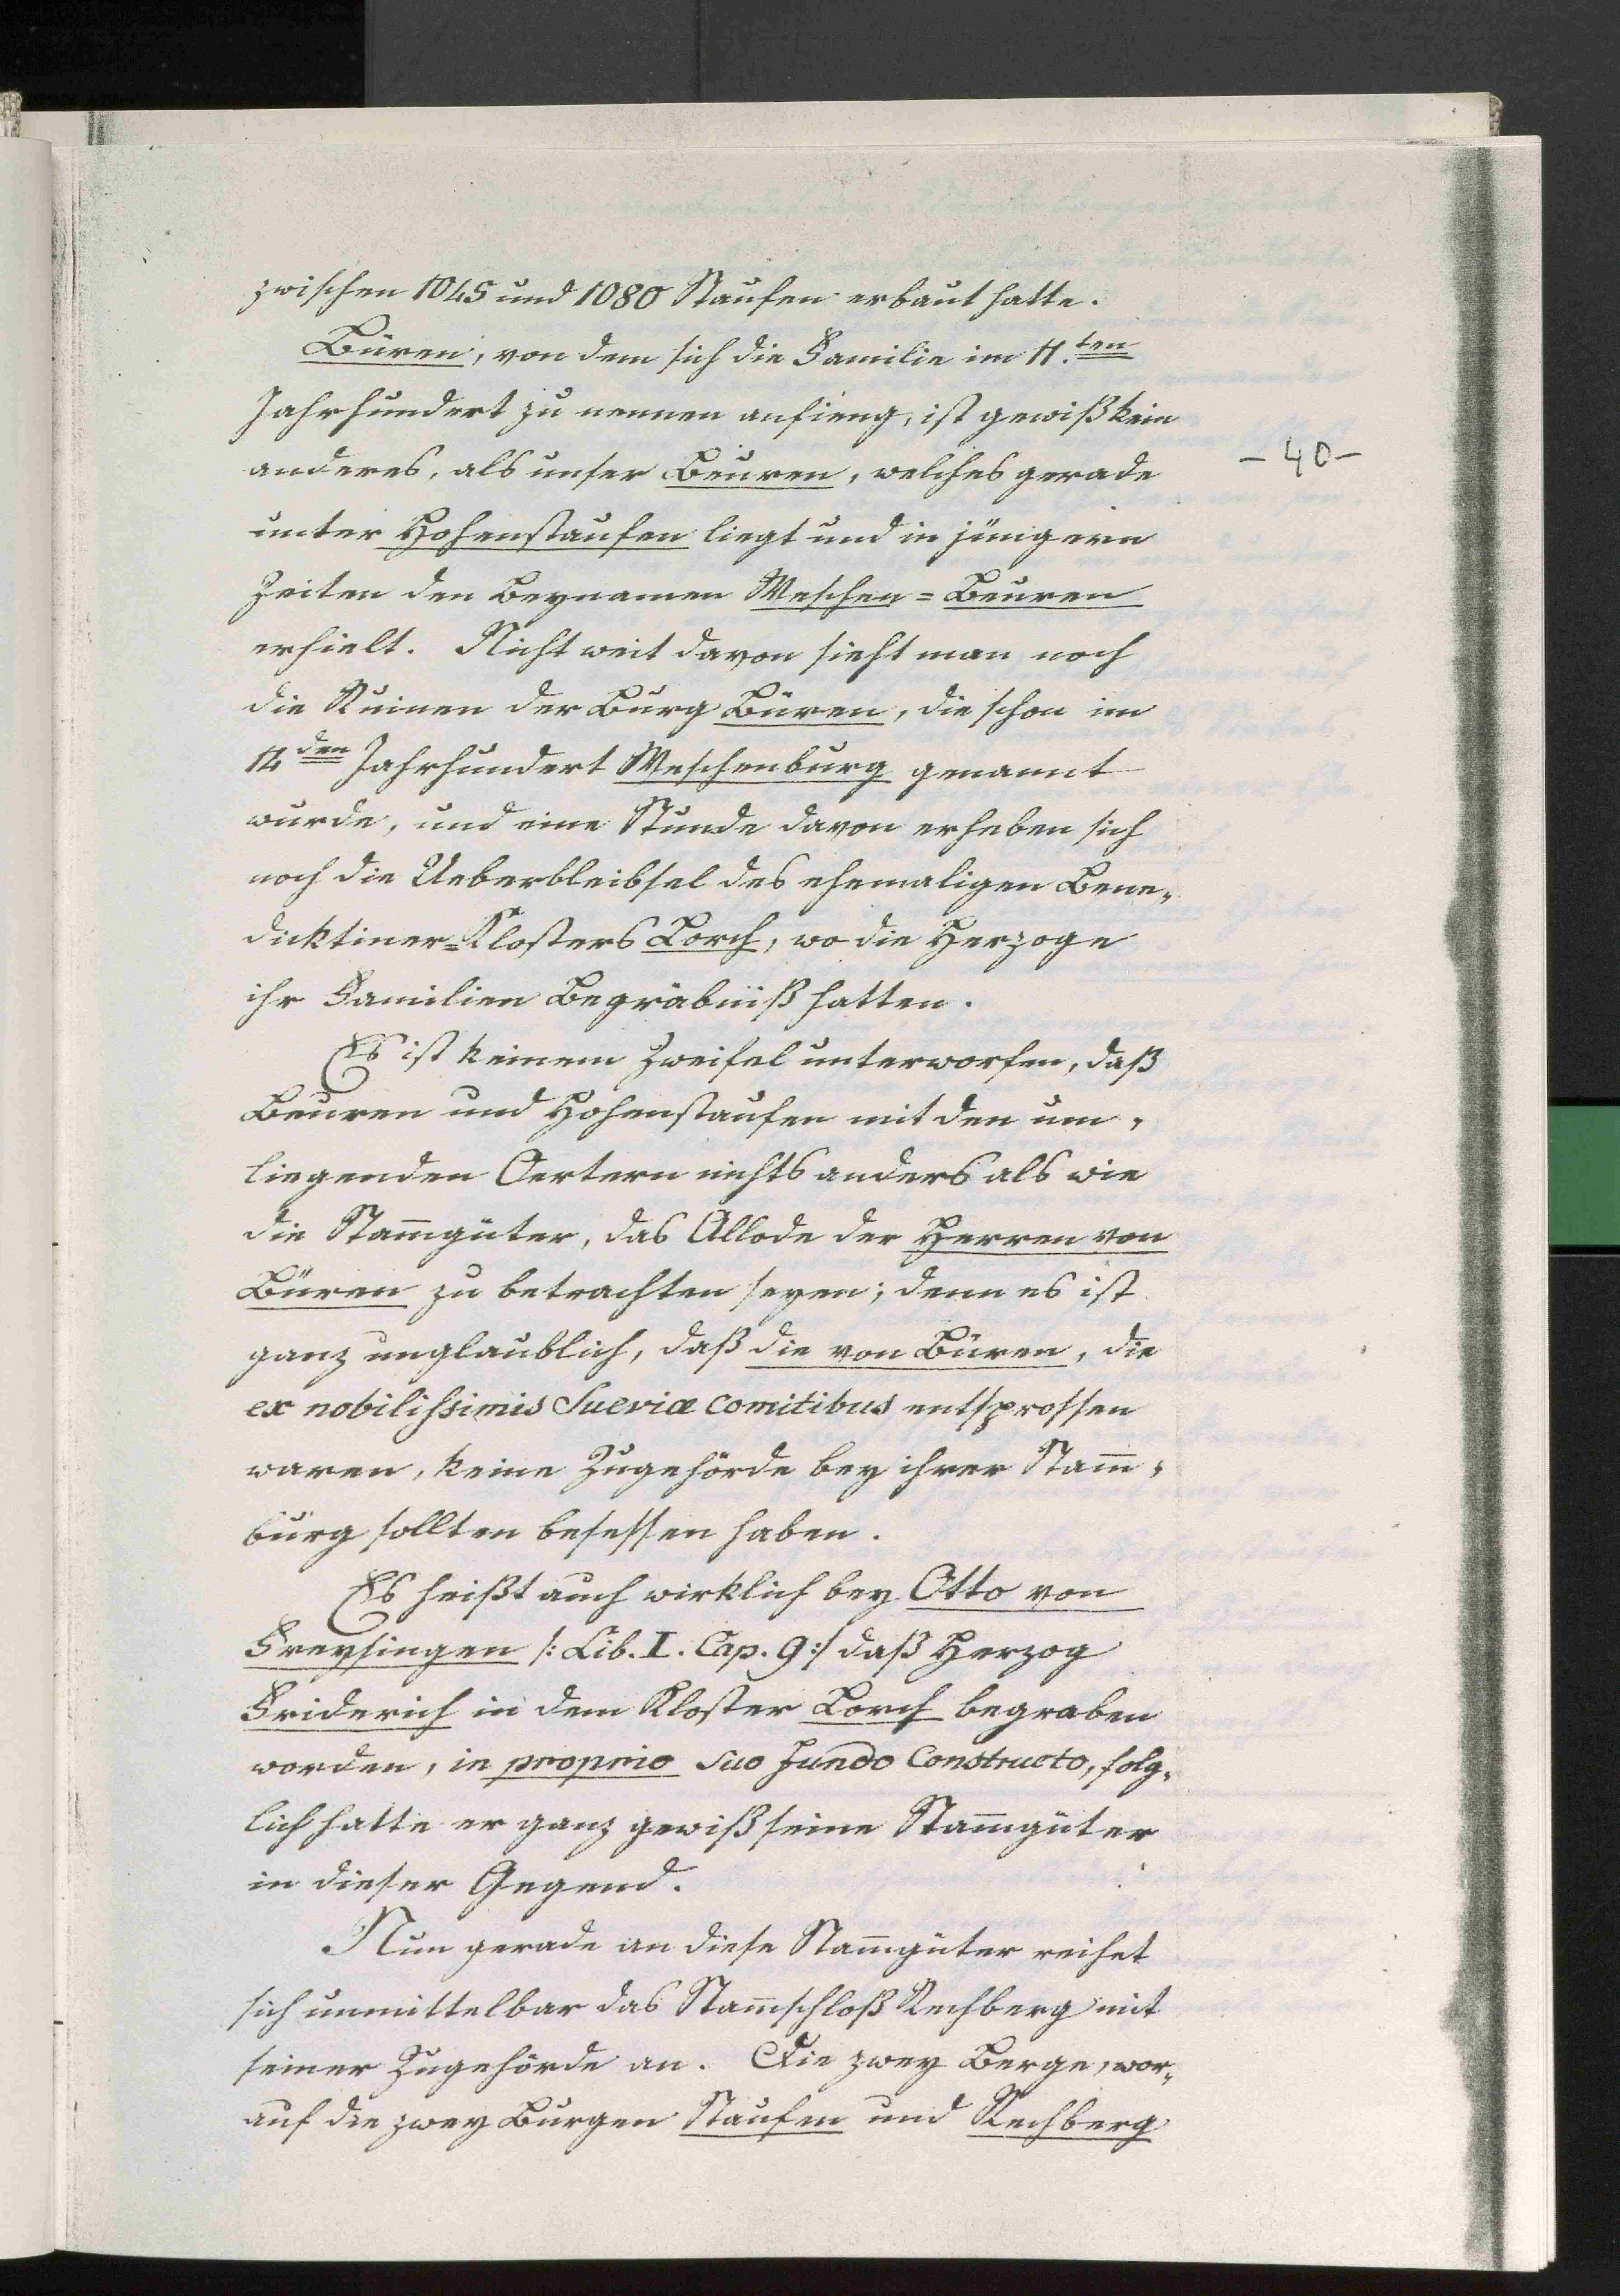 zwischen 1045 und 1080 Staufen erbaut hatte.
Büren, von dem sich die Familie im 11.ten
Jahrhundert zu nennen anfieng, ist gewiß kein
anderes, als unser Beuren, welches gerade
- 40 -
unter Hohenstaufen liegt und in jüngern
Zeiten den Beynamen Weschen=Beuren
erhielt. Nicht weit davon sieht man noch
die Ruinen der Burg Büren, die schon im
den Jahrhundert Weschenburg genannt
wurde, und eine Stunde davon erheben sich
noch die Ueberbleibsel des ehemaligen Bene„
dicktiner=Klosters Lorch, wo die Herzoge
ihr Familien Begräbniß hatten.
Es ist keinem Zweifel unterworfen, daß
Beuren und Hohenstaufen mit den um„
liegenden Oertern nichts anders als wie
die Stam̅güter, das Allode der Herren von
Büren zu betrachten seyen; denn es ist
ganz unglaublich, daß die von Büren, die
ex nobilissimis Sueviæ comitibus entsprossen
waren, keine Zugehörde bey ihrer Stam̅„
burg sollten besessen haben.
Es heißt auch wirklich bey Otto von
Freysingen /: Lib. I. Cap. 9 :/ daß Herzog
Friderich in dem Kloster Lorch begraben
worden, in proprio suo fundo Constructo, folg„
lich hatte er ganz gewiß seine Stam̅güter
in dieser Gegend.
Nun gerade an diese Stam̅güter reihet
sich unmittelbar das Stam̅schloß Rechberg mit
seiner Zugehörde an. Die zwey Berge, wor„
auf die zwey Burgen Staufen und Rechberg